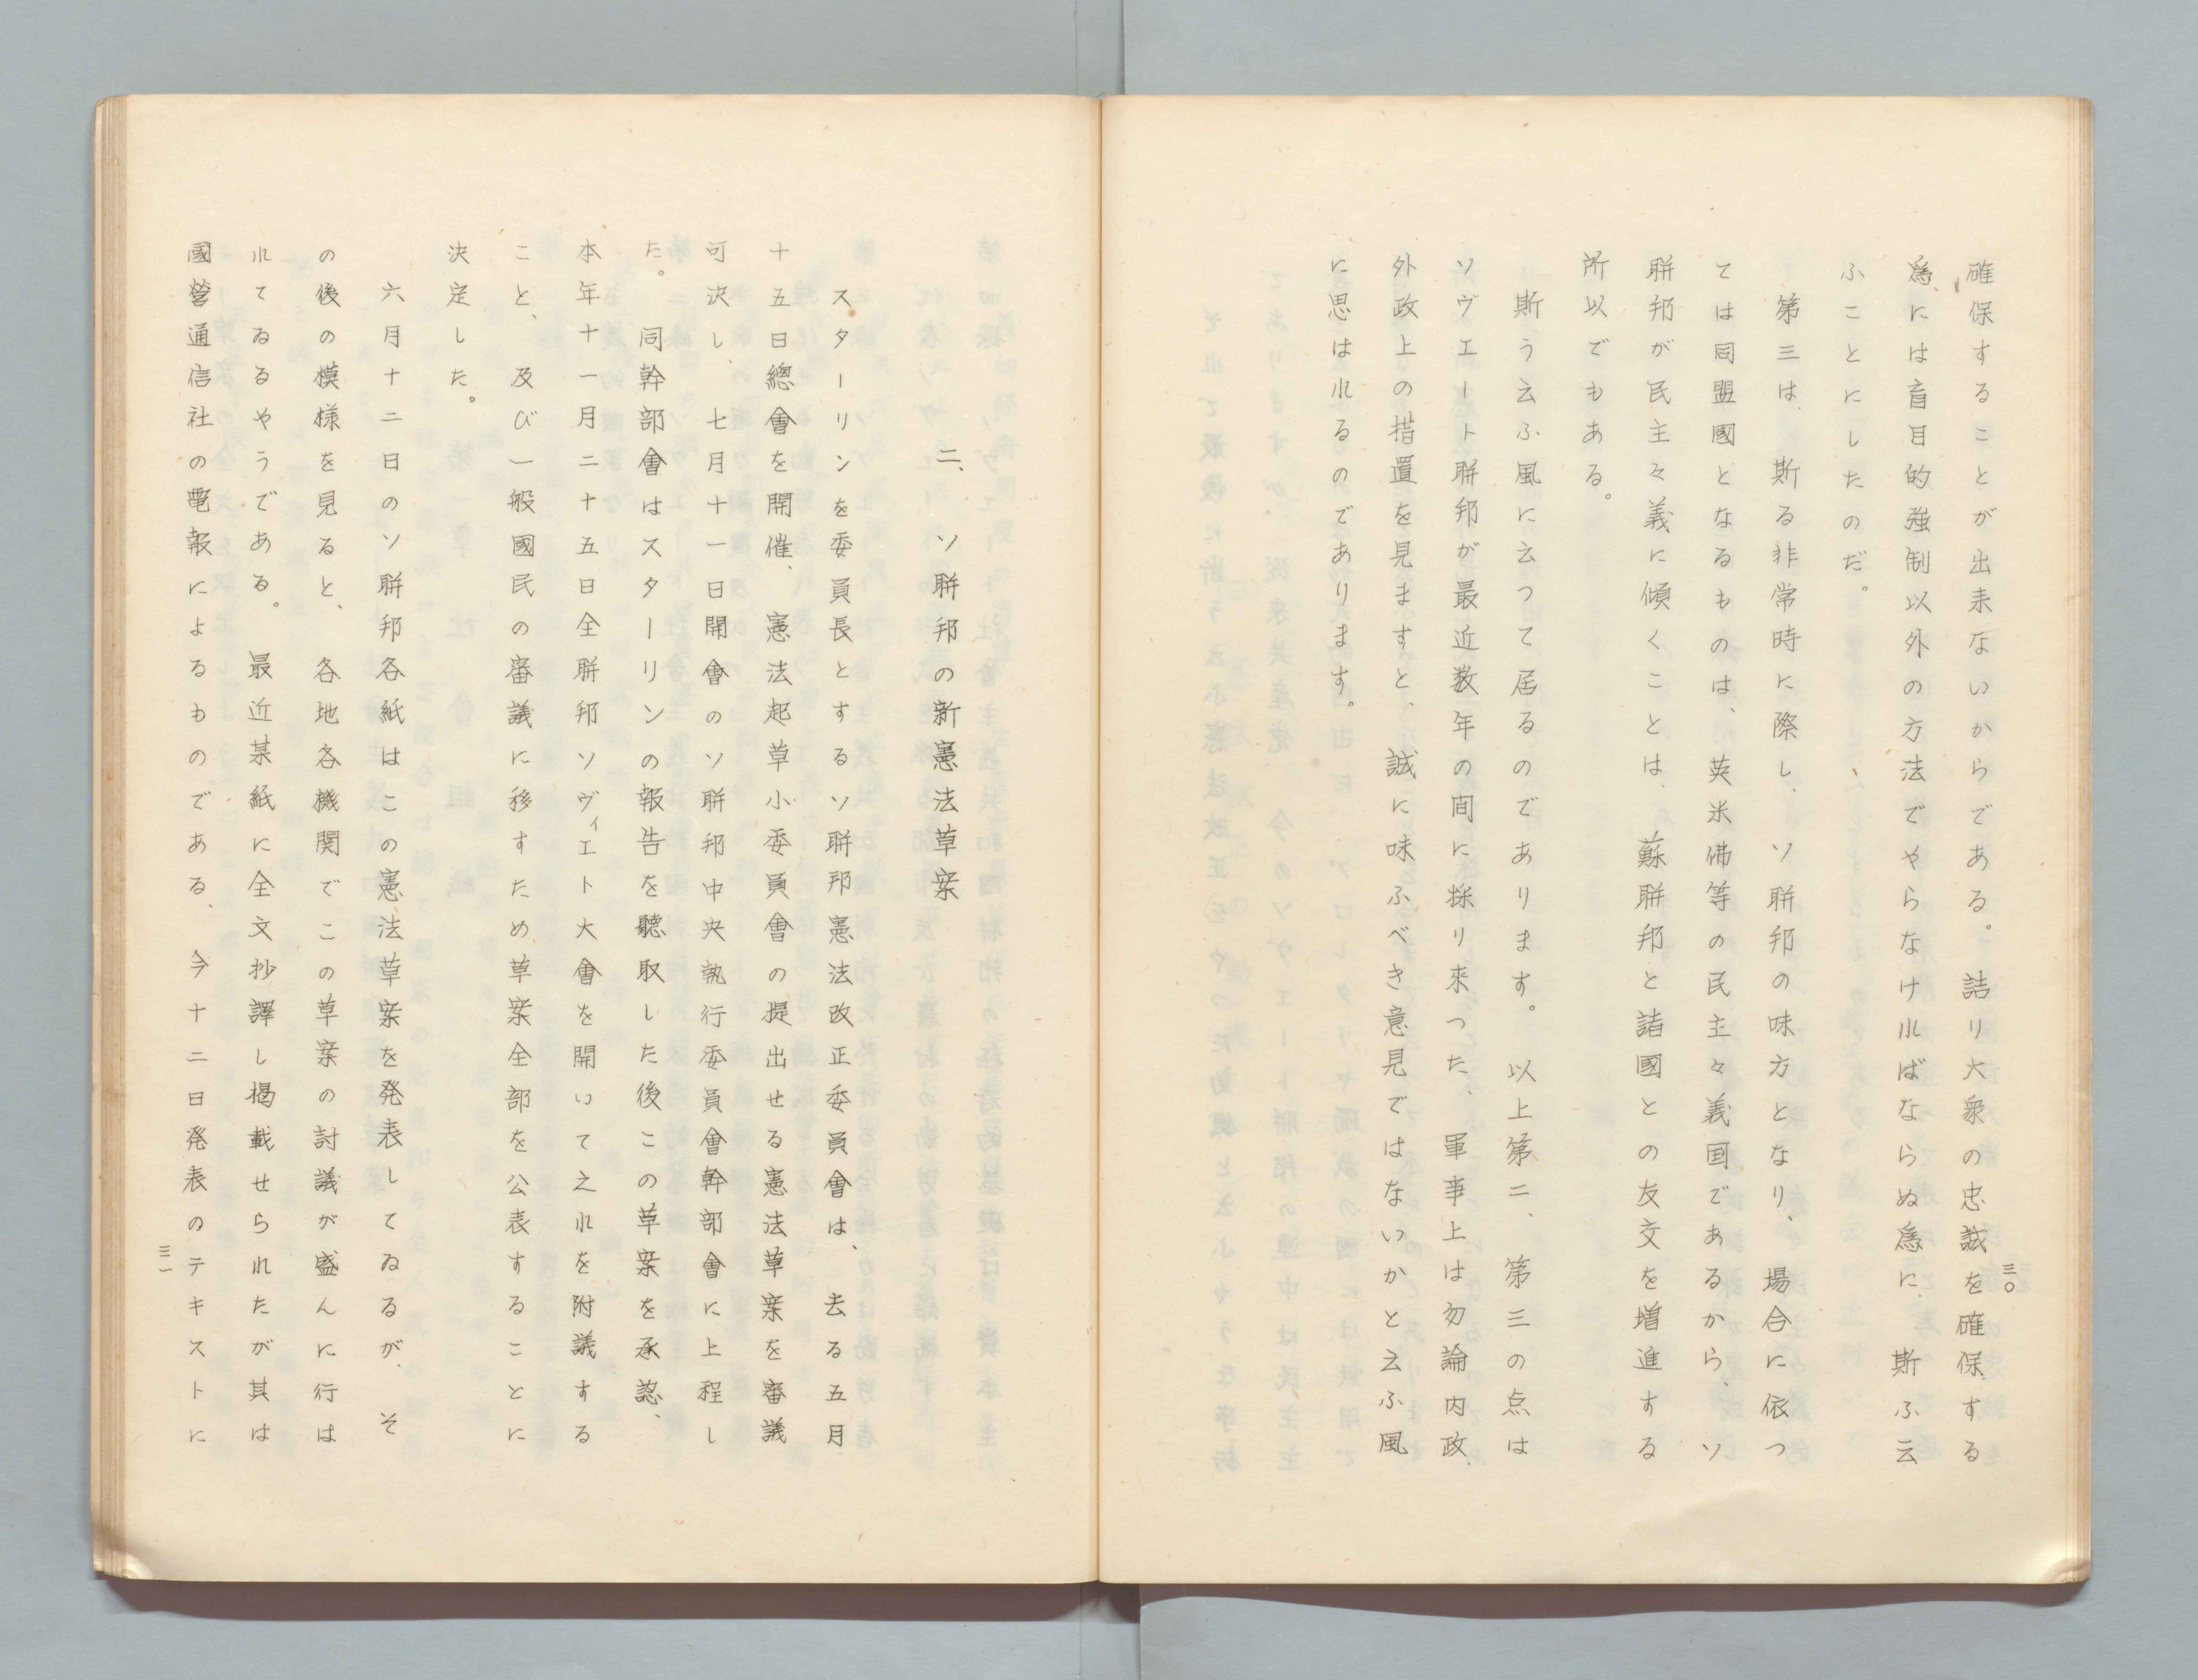 確保することが出来ないからである。　詰リ大衆の忠誠を確保する
爲には盲目的強制以外の方法でやらなければならぬ爲に、斯ふ云
ふことにしたのだ。
第三は、斯る非常時に際し、ソ聯邦の味方となり、場合に依つ
ては同盟國となるものは、英米佛等の民主々義国であるから、ソ
聯邦が民主々義に傾くことは、蘇聯邦と諸國との友交を増進する
所以でもある。
斯う云ふ風に云つて居るのであります。　以上第二、第三の点は
ソヴエート聯邦が最近数年の間に採り来つた、軍事上は勿論内政、
外政上の措置を見ますと、誠に味ふべき意見ではないかと云ふ風
に思はれるのであります。
三〇
二、　ソ聯邦の新憲法草案
スターリンを委員長とするソ聯邦憲法改正委員會は、去る五月
十五日總會を開催、憲法起草小委員會の提出せる憲法草案を審議
可決し、七月十一日開會のソ聯邦中央執行委員會幹部會に上程し
た。　同幹部會はスターリンの報告を聽取した後この草案を承認、
本年十一月二十五日全聯邦ソヴィエト大會を開いて之れを附議する
こと、及び一般國民の審議に移すため、草案全部を公表することに
決定した。
六月十二日のソ聯邦各紙はこの憲法草案を発表してゐるが、そ
の後の模様を見ると、各地各機関でこの草案の討議が盛んに行は
れてゐるやうである。　最近某紙に全文抄譯し掲載せられたが其は
國營通信社の電報によるものである、今十二日発表のテキストに
三一